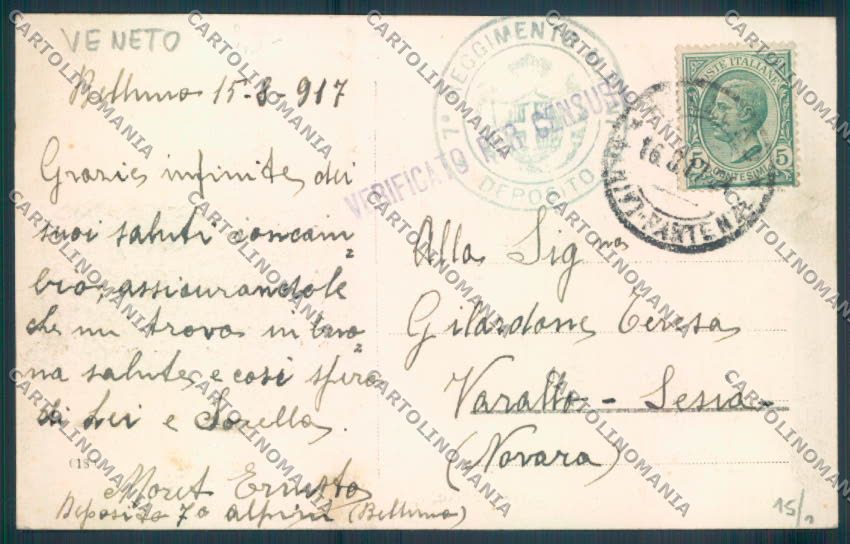 VENETO
Belluno 15-8-917
Grazie infinite dei
suoi saluti concam
bio, assicurandole
che mi trovo in buo
na salute e così spero
di Lei e Sorella.
Moret Ernesto
Deposito 7° Alpini (Belluno)
7° REGGIMENTO
DEPOSITO
VERIFICATO PER CENSURA
POSTE ITALIANE
5 CENTESIMI 5
16
Alla Sig.na
Gilardone Teresa
Varallo - Sesia
(Novara)
15/
CARTOLINOMANIA